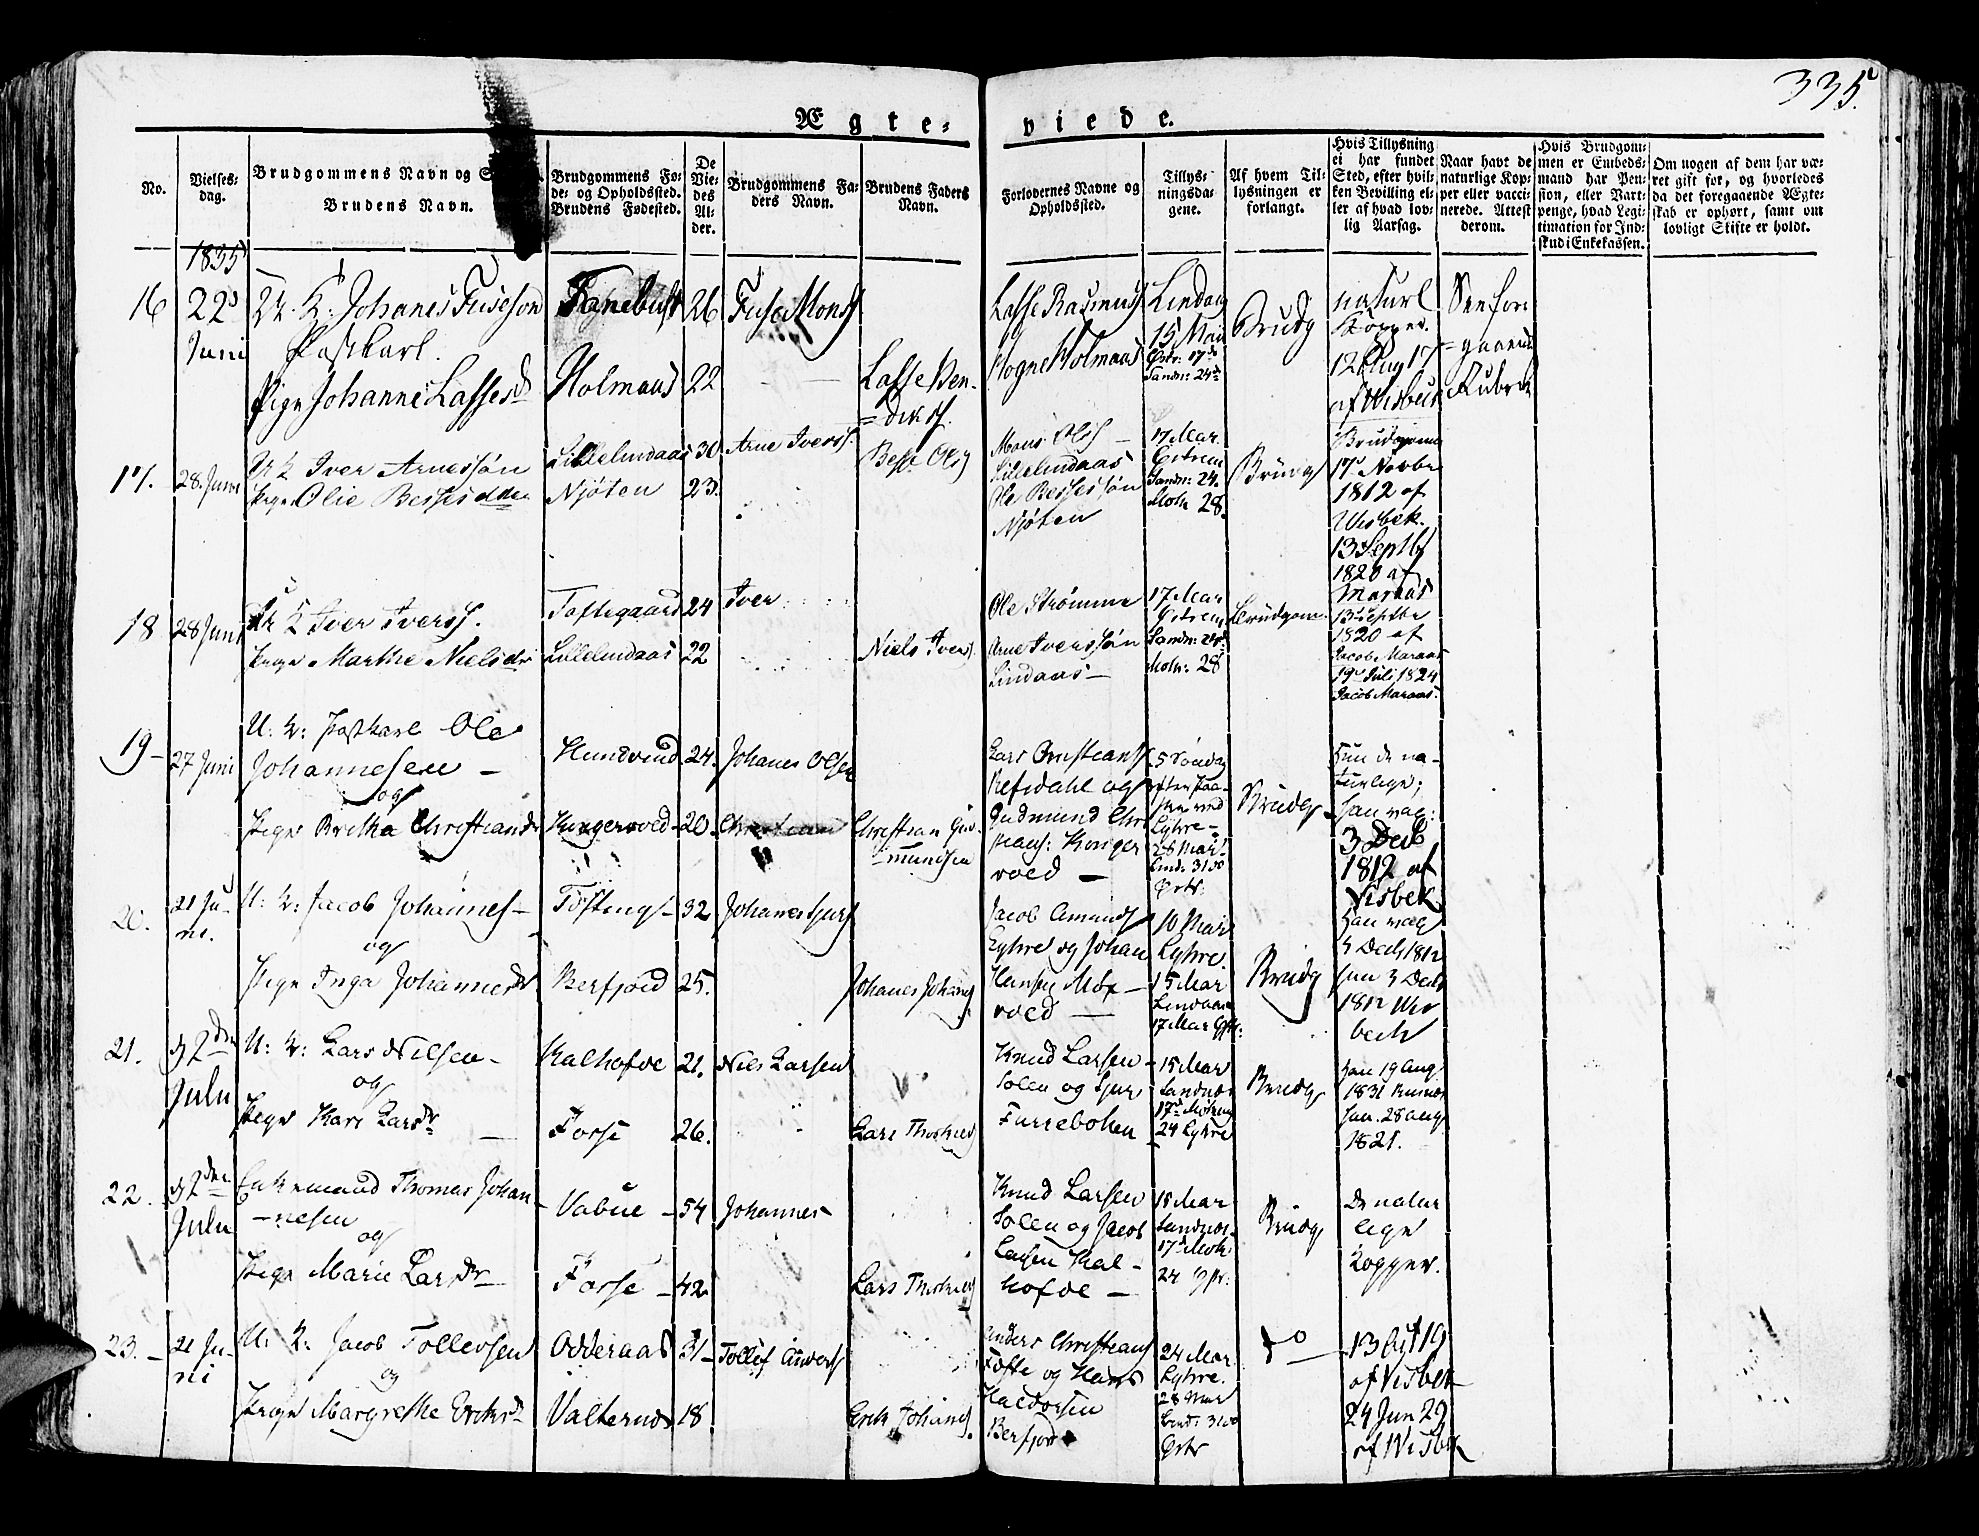 335.
Ægte-viede.
No.
Vielses-
dag.
Brudgommens Navn og
Brudens Navn.
Brudgommens Fø-
de- og Opholdssted.
Brudens Fødested.
De
Vie-
des
Al-
der.
Brudgommens Fa-
ders Navn.
Brudens Faders
Navn.
Forlovernes Navne og
Opholdssted.
Tillys-
ningsda-
gene.
Af hvem Til-
lysningen er
forlangt.
Hvis Tillysning
ei har fundet
Sted, efter hvil-
ken Bevilling el-
ler af hvad lov-
lig Aarsag.
Naar havt de
naturlige Kop-
per eller vacci-
nerede. Attest
derom.
Hvis Brudgom-
men er Embeds-
mand har Pen-
sion, eller Vart-
penge, hvad Legi-
timation for Ind-
skud i Enkekassen.
Om nogen af dem har væ-
ret gift før, og hvorledes
da det foregaaende Ægte-
skab er ophørt, samt om
lovligt Skifte er holdt.
1835
16
22
Juni
U. K: Johanes Fuseson
Postkarl.
Pige Johanne Lassesd
Fanebust
Holmaas
26
22
Fuse Monss
Lasse Ben-
=diks.
Lasse Rasmuss
Mogne Holmaas
Lindaas
15 Mai
Østr: 17de
Sandn: 24de
Brudg
naturl
Kopper.
12 Aug 17
af Wisbek
Se for-
=gaaende
Rubrik
17.
28. Juni
U K Iver Arnessøn
Pige Olie Bessesdtter
Lillelindaas
Njøten
30
23.
Arne Iverss.
Besse Ols
Mons Ols
Lillelindaas
Ole Bessessøn
Njøten
17 Mai
Østrem
Sandn: 24.
Moln 28.
Brudg
Brudgomme
17 Novbr
1812 af
Wisbek.
13 Septbr
1820 af
Maraas
18
28 Juni
U K Iver Iverss.
Pige Marthe Nielsdr
Toftegaard
Lillelindaas
24
22
Iver
Niels Ivers
Ole Strømme
Arne Iverssøn
Lindaas
17 Mai
Østrem
Sandn: 24de
Moln: 28
Brudgom.
13 Septbr
1820 af
Jacob Maraas
19 Juli 1824
Jacob Maraas.
19
27 Juni
U: K: Postkarl Ole
Johannesen
og
Pige Britha Christiansdr
Hundvend
Kongervold
24.
20
Johanes Olsen
Christian
Christian Gud-
mundsen
Lars Christians
Refsdahl og
Gudmund Chri
stians: Konger
vold
5 Søndag
efter Paa-
ske ved
Lyhre
28 Mai
Lind: 31
Østr:
Brudg
Hun de na-
turlige;
han vac:
3 Decb
1812 af
Visbek
20.
21 Ju-
ni.
U: K: Jacob Johannes
og
Pige Inga Johannesdr
Tostings
Berfjord
32
25.
Johanes
Johanes Johans
Jacob Amunds
Lyhre og Johan
Hansen
vold
10 Mai
Lyhre.
15 Mai
Lindaas
17 Mai Østr:
Brudg
Han vac
3 Decb 1812
hun 3 Decb
1812 Wis
beck
21.
d 2den
Julii
U: K: Lars Nilsen
og
Pige Kari Larsdr
Kalhofde
Forse
21.
26.
Niels Larsen
Lars
Knud Larsen
Solen og Sjur
Furrebohen
15 Mai
Sandnæs
17
24 Lyhre
Brudg
Han 19 Aug
1831
hun. 28 Aug
1821.
22.
d 2den
Julii
Enkemand Thomas Johan-
nesen
og
Pige Marie Larsdr
Vabue
Forse
54
42
Johannes
Lars
Knud Larsen
Solen og Jacob
Larsen Kal-
hofde
15 Mai
Sandnæs.
17 Moln
24
Brudg
De natur
lige
Kopper.
23.
21 Ju-
ni
U: K: Jacob Tollevsen
og
Pige Margrethe Eriksdr
Odderaas
Valternæs
31
18
Tollef Anders
Erik Johans
Anders Christians
Tofte og Hans
Haldorsen
Berfjord
24 Mai
Lyhre.
28 Mai
Lind: 31
Østr
do
13 19
af Visbek
24 Jun 29
af Wisbek